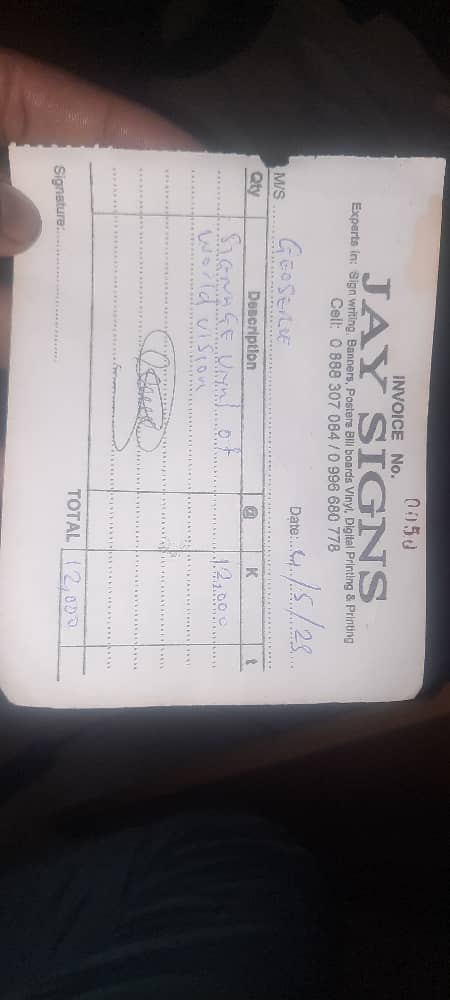 INVOICE No. 0050
JAY SIGNS
Experts in: Sign writing, Banners, Posters Bill boards Vinyl, Digital Printing & Printing
Cell: 0 888 307 084 / 0 996 680 778
Date: 4/5/23
M/S GEOSERVE
Qty Description @ K t
SIGNAGE VINYL of 12,000
World vision
TOTAL 12,000
Signature: